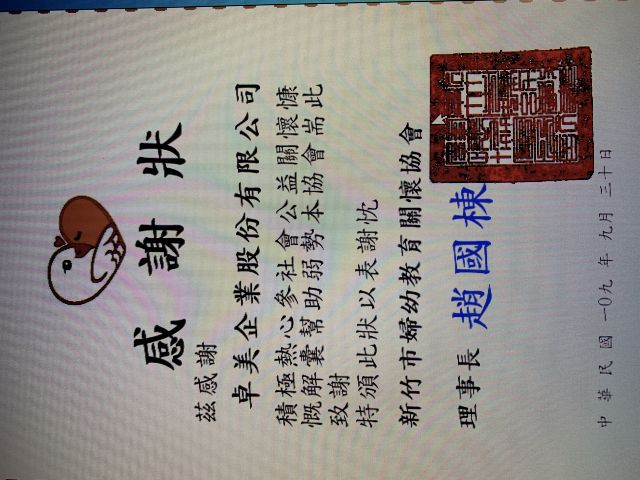 感謝狀
茲感謝
卓美企業股份有限公司
積極熱心參社會公益關懷慷
慨解囊幫助弱勢本協會耑此
致謝
特頒此狀以表謝忱
新竹市婦幼教育關懷協會
理事長 趙國棟
中華民國 一0九 年 九月 三十日